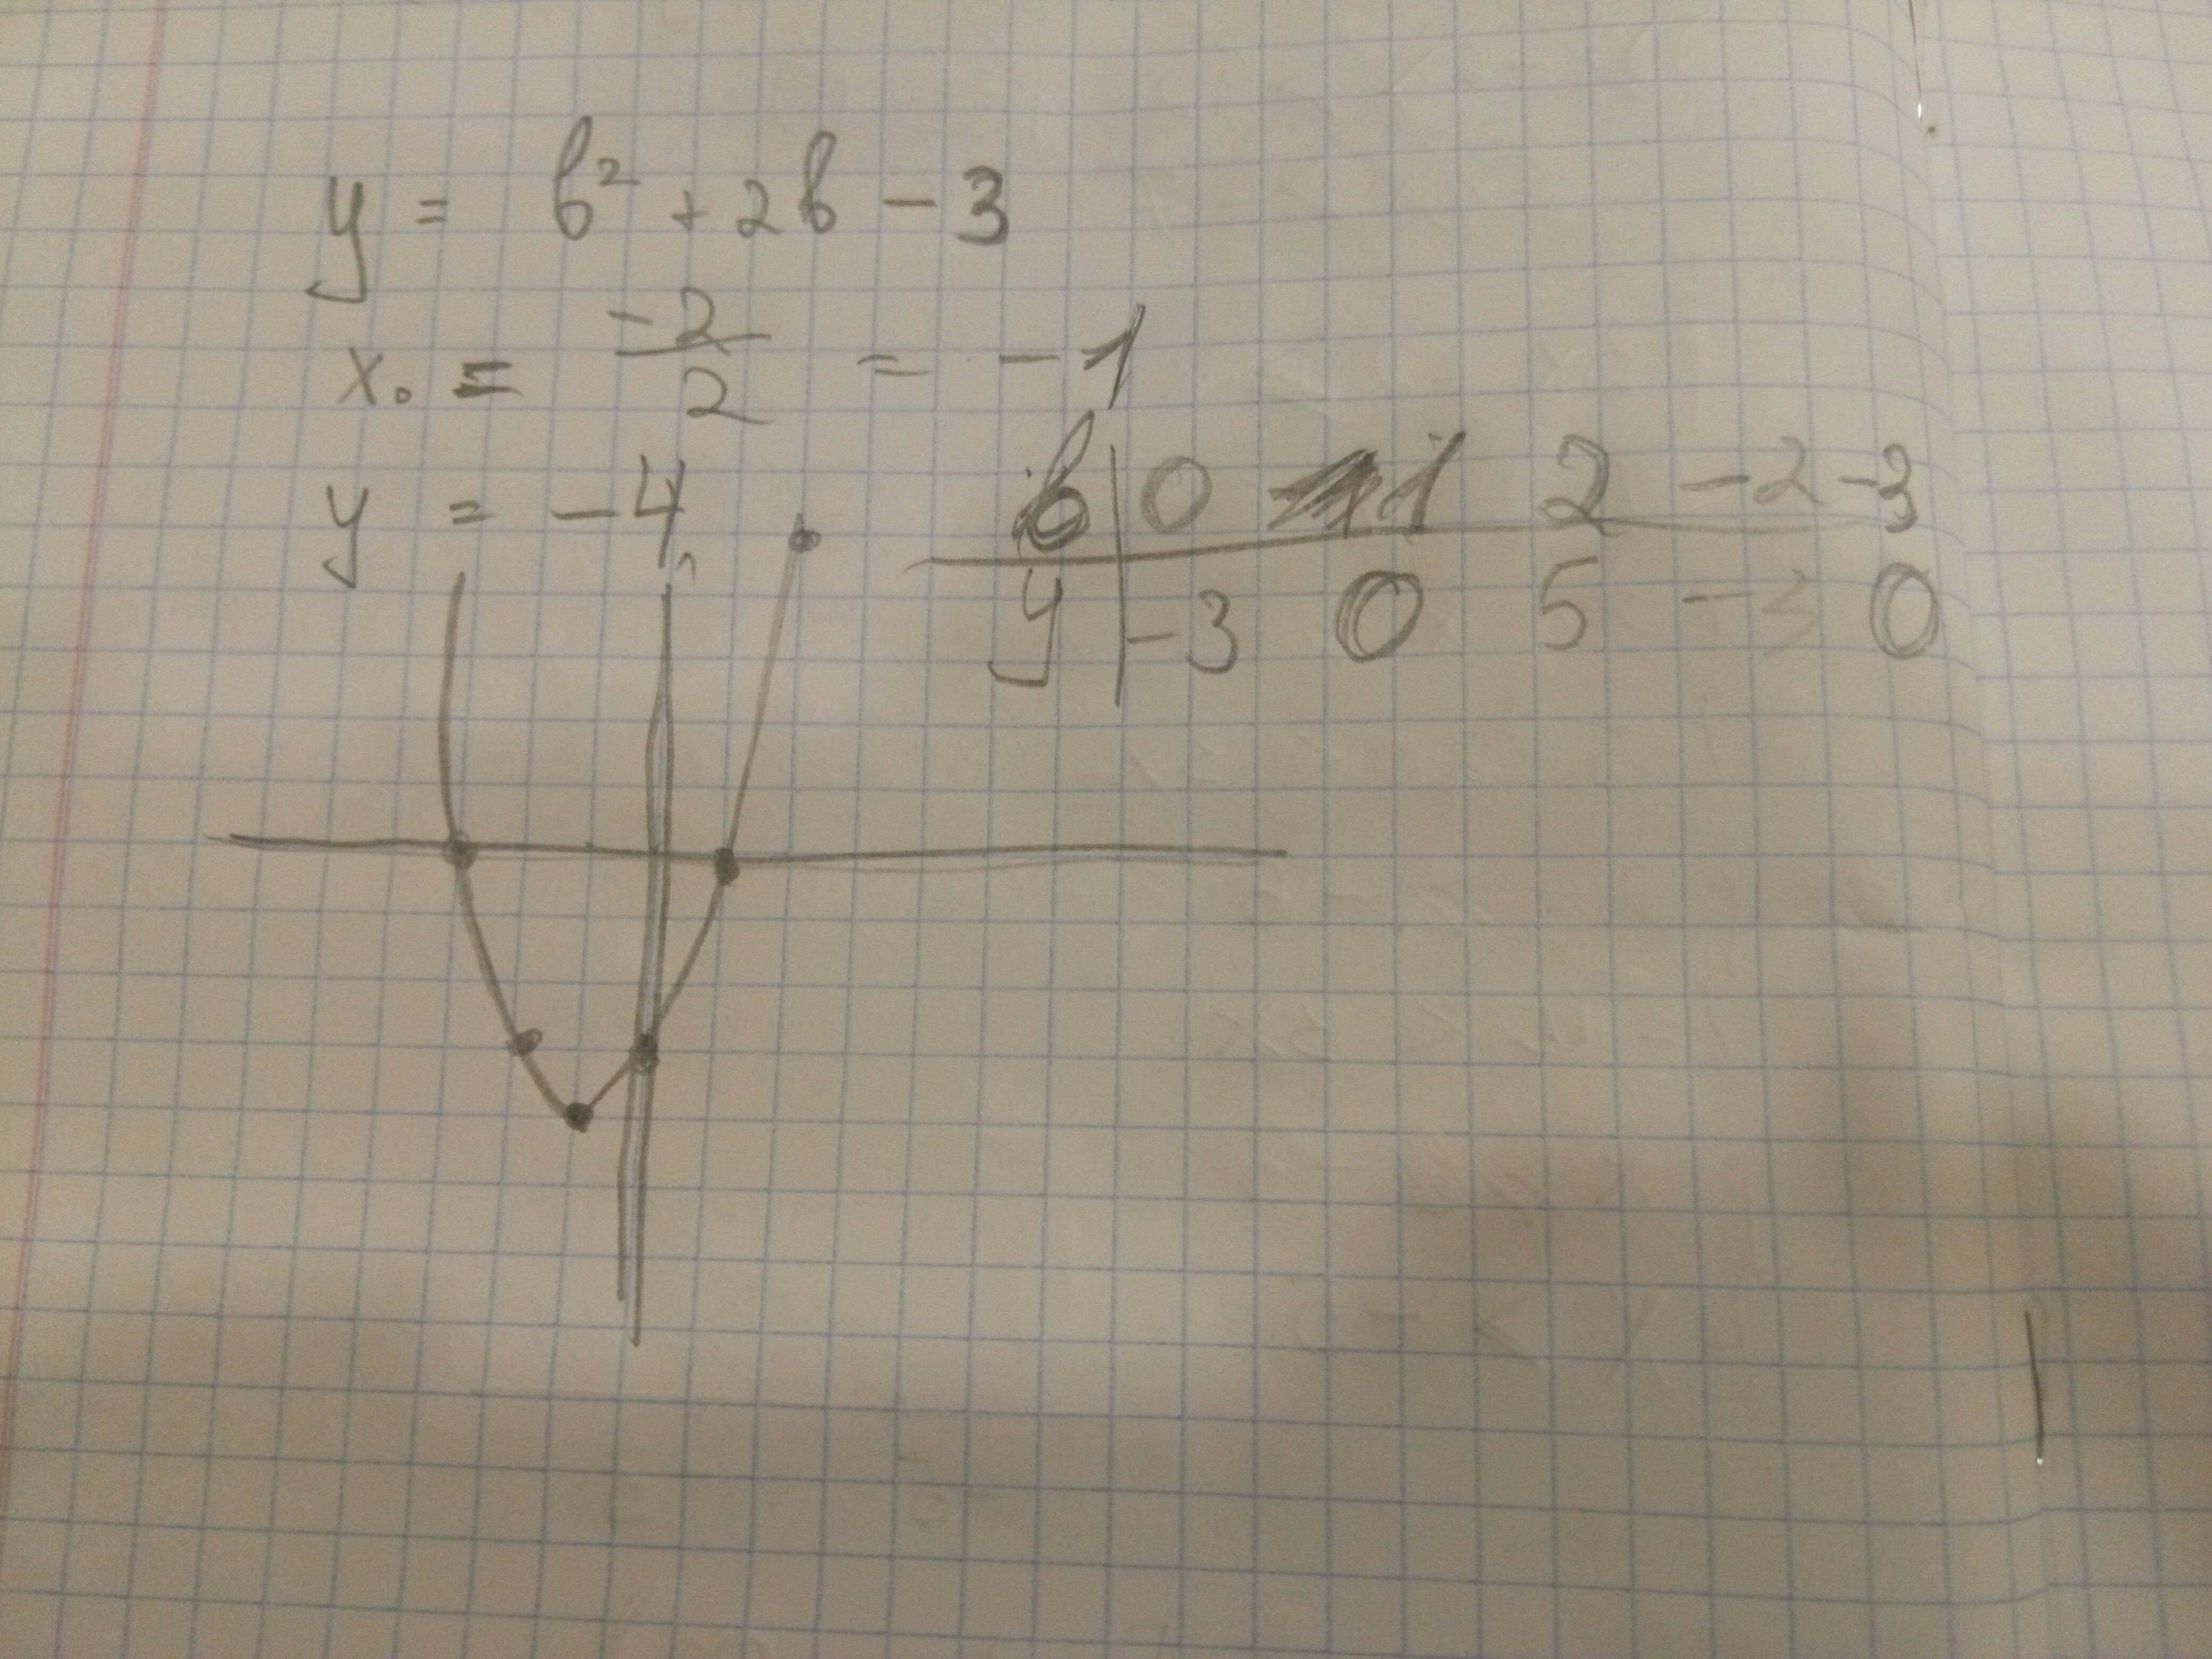 y = b² + 2b - 3
x₀ = -2/2 = -1
y = -4
b | 0 1 2 -2 -3
y | -3 0 5 -3 0